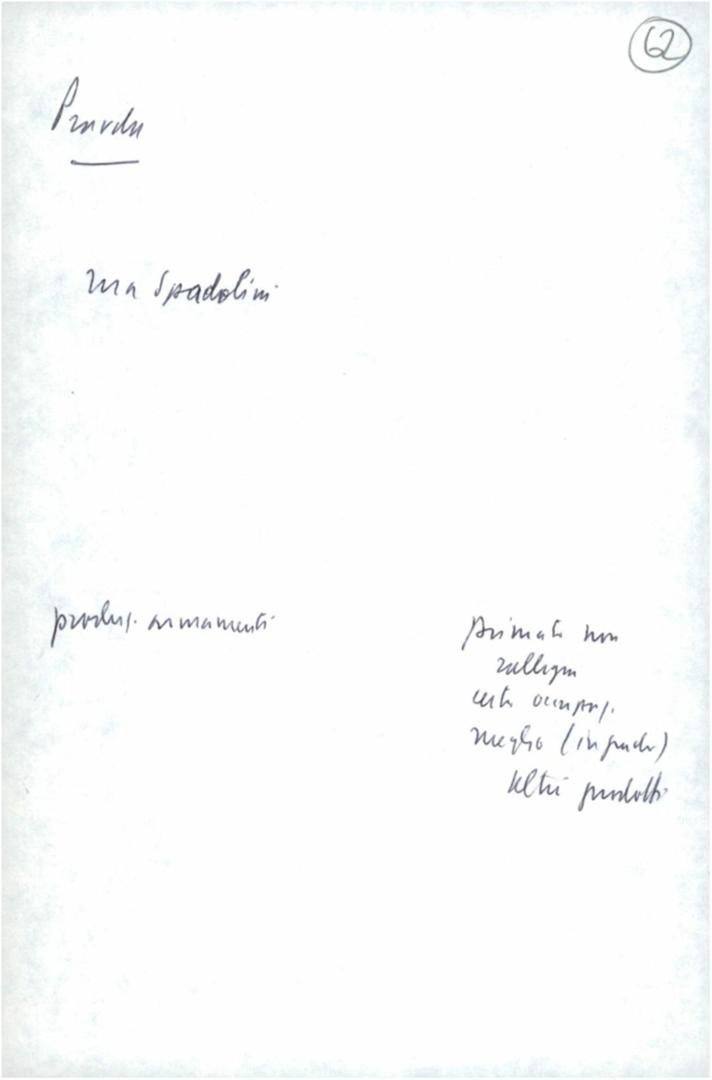 62
Pravda
ma Spadolini
produz. armamenti
primato non
rallegra
certo occupaz.
meglio (in grado)
altri prodotti